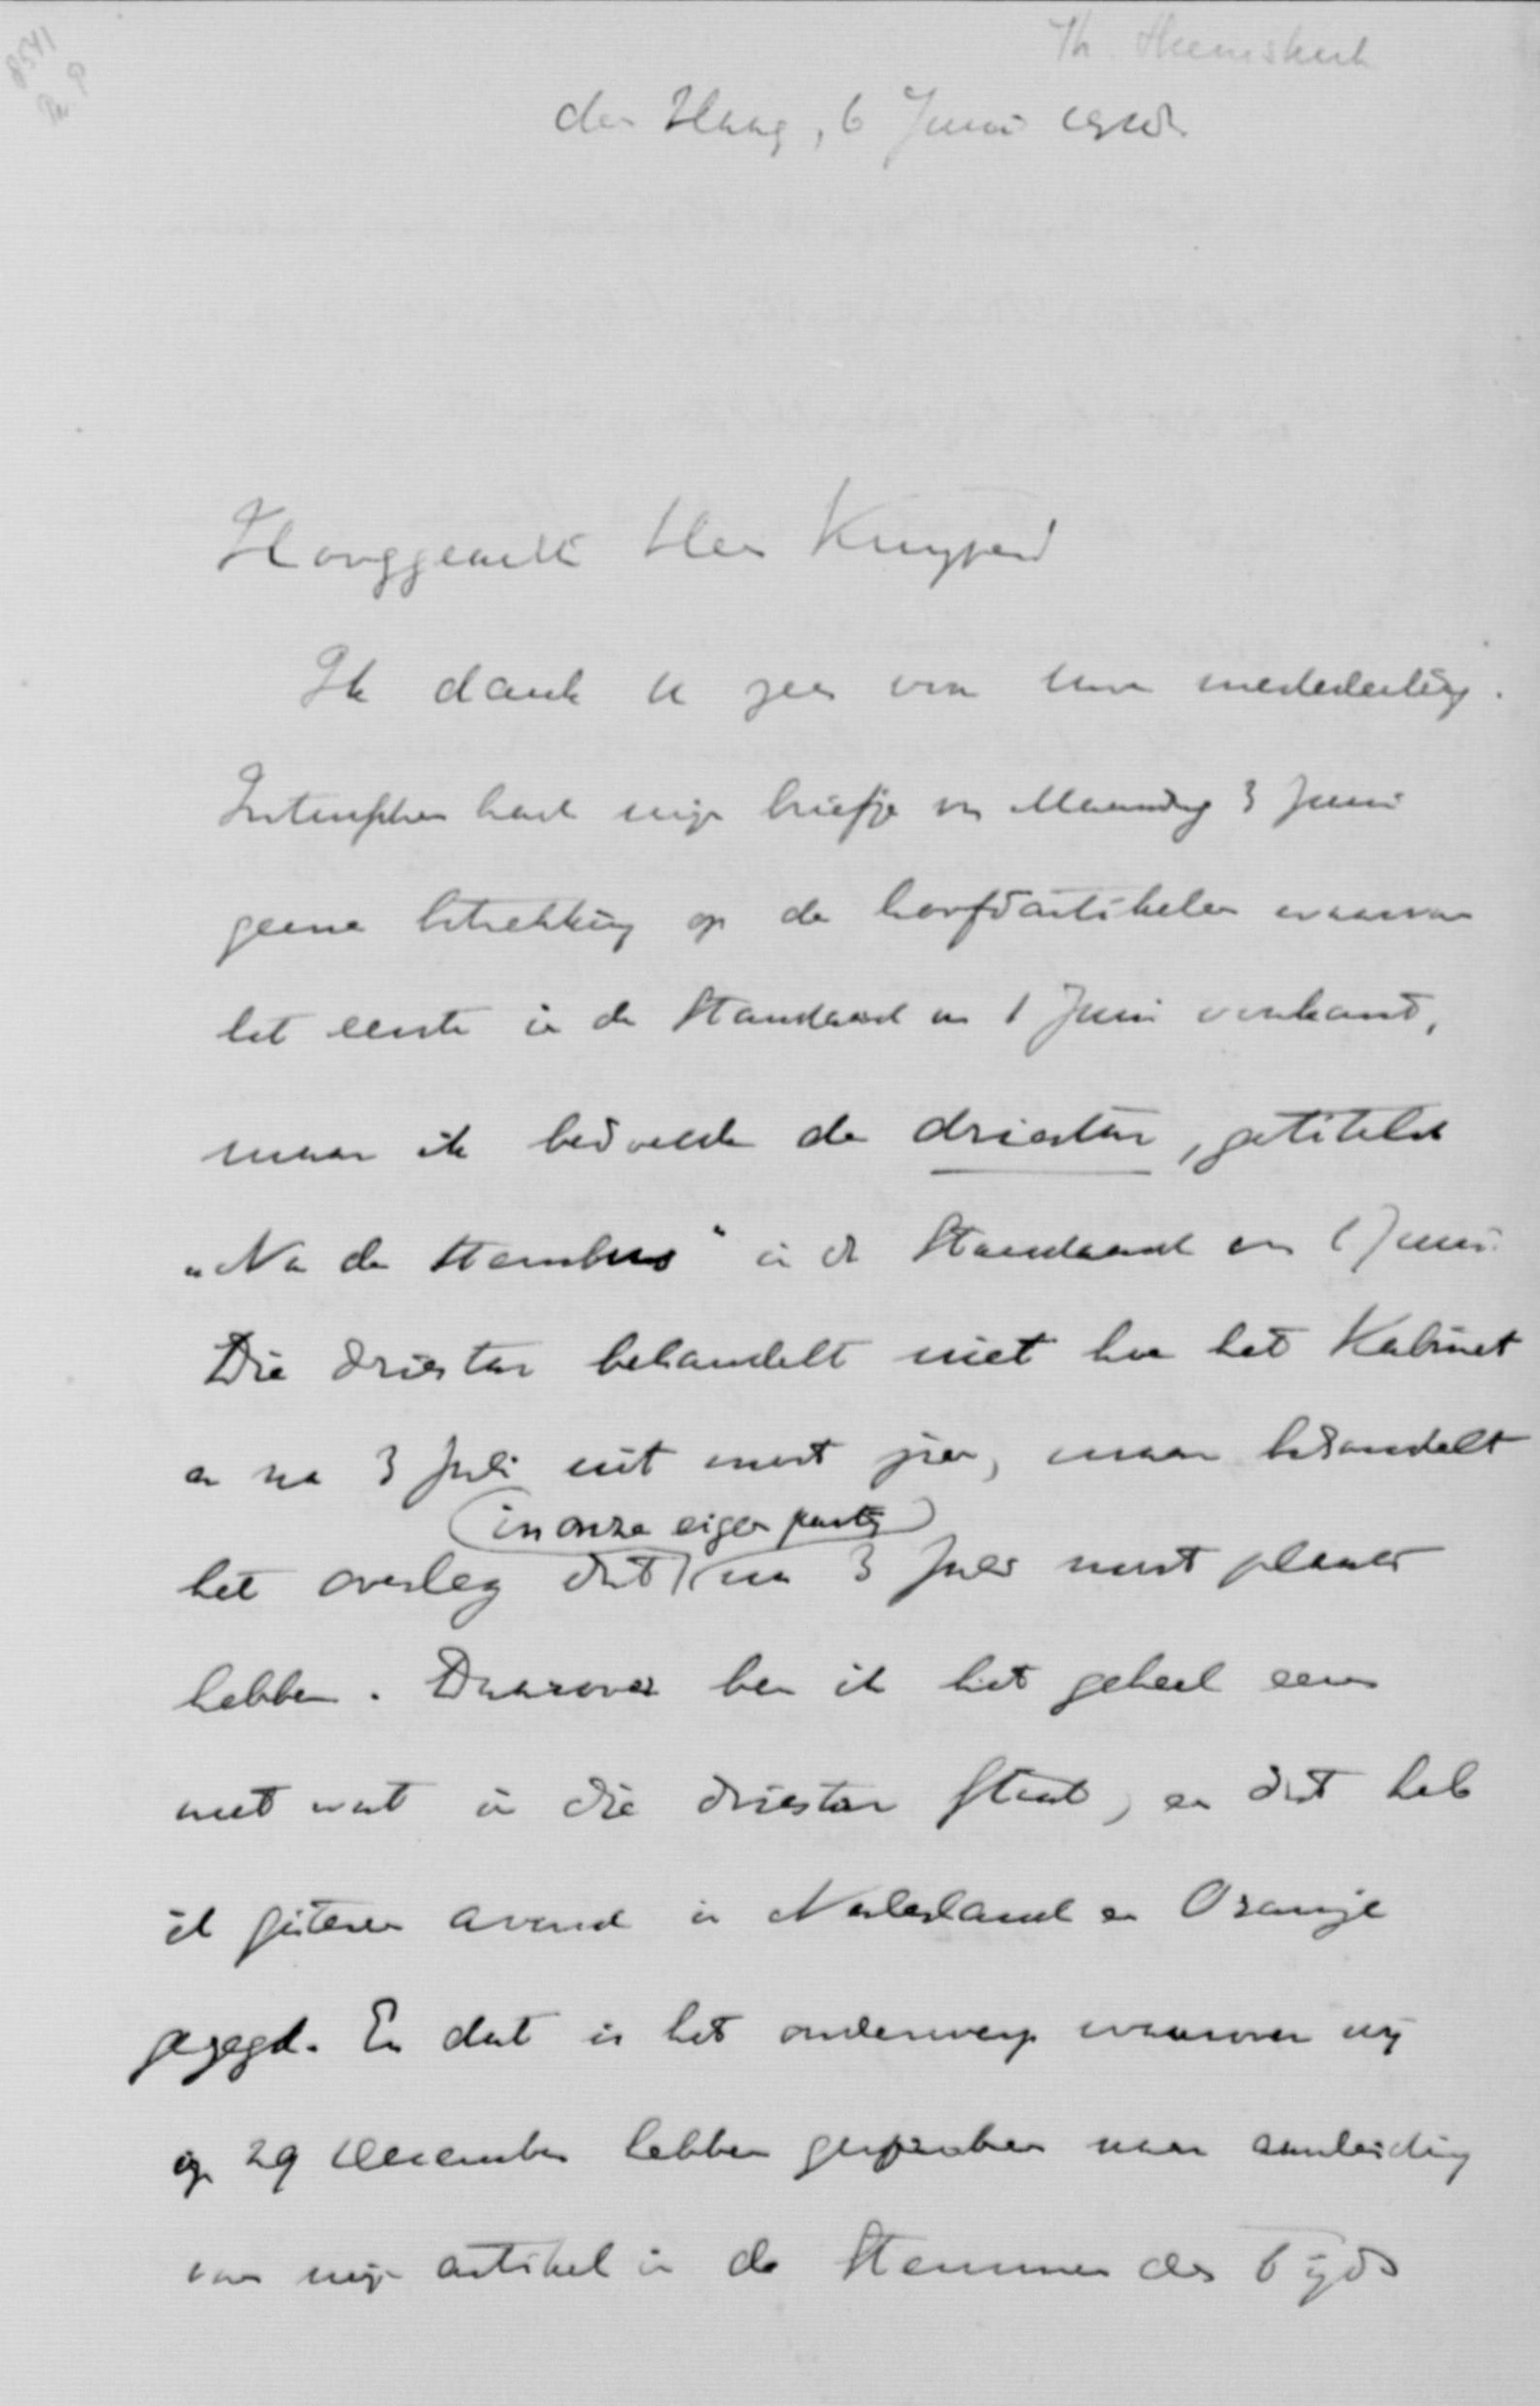 8541
Th. Heemskerk
den Haag, 6 Juni 1918.
Hooggeachte Heer Kuyper
Ik dank u zeer voor uwe mededeeling.
Intusschen had mijn briefje van Maandag 3 Juni
geene betrekking op de hoofdartikelen waarvan
het eerste in de Standaard van 1 Juni voorkomt,
maar ik bedoelde de driestar, getiteld
„Na de Stembus" in de Standaard van 1 Juni.
Die driestar behandelt niet hoe het Kabinet
er na 3 Juli uit moet zien, maar behandelt
(in onze eigen partij)
het overleg dat na 3 Juli moet plaats
hebben. Daarover ben ik het geheel eens
met wat in die driestar staat, en dat heb
ik gisteren avond in Nederland en Oranje
gezegd. En dat is het onderwerp waarover wij
op 29 December hebben gesproken naar aanleiding
van mijn artikel in de Stemmen des Tijds